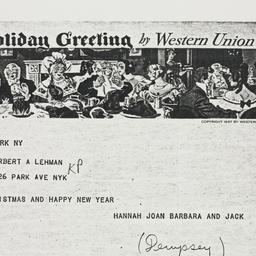 oliday Greeting by Western Union
COPYRIGHT 1937 BY WESTER
RK NY
RBERT A LEHMAN
KP
26 PARK AVE NYK
ISTMAS AND HAPPY NEW YEAR
HANNAH JOAN BARBARA AND JACK
(Dempsey)